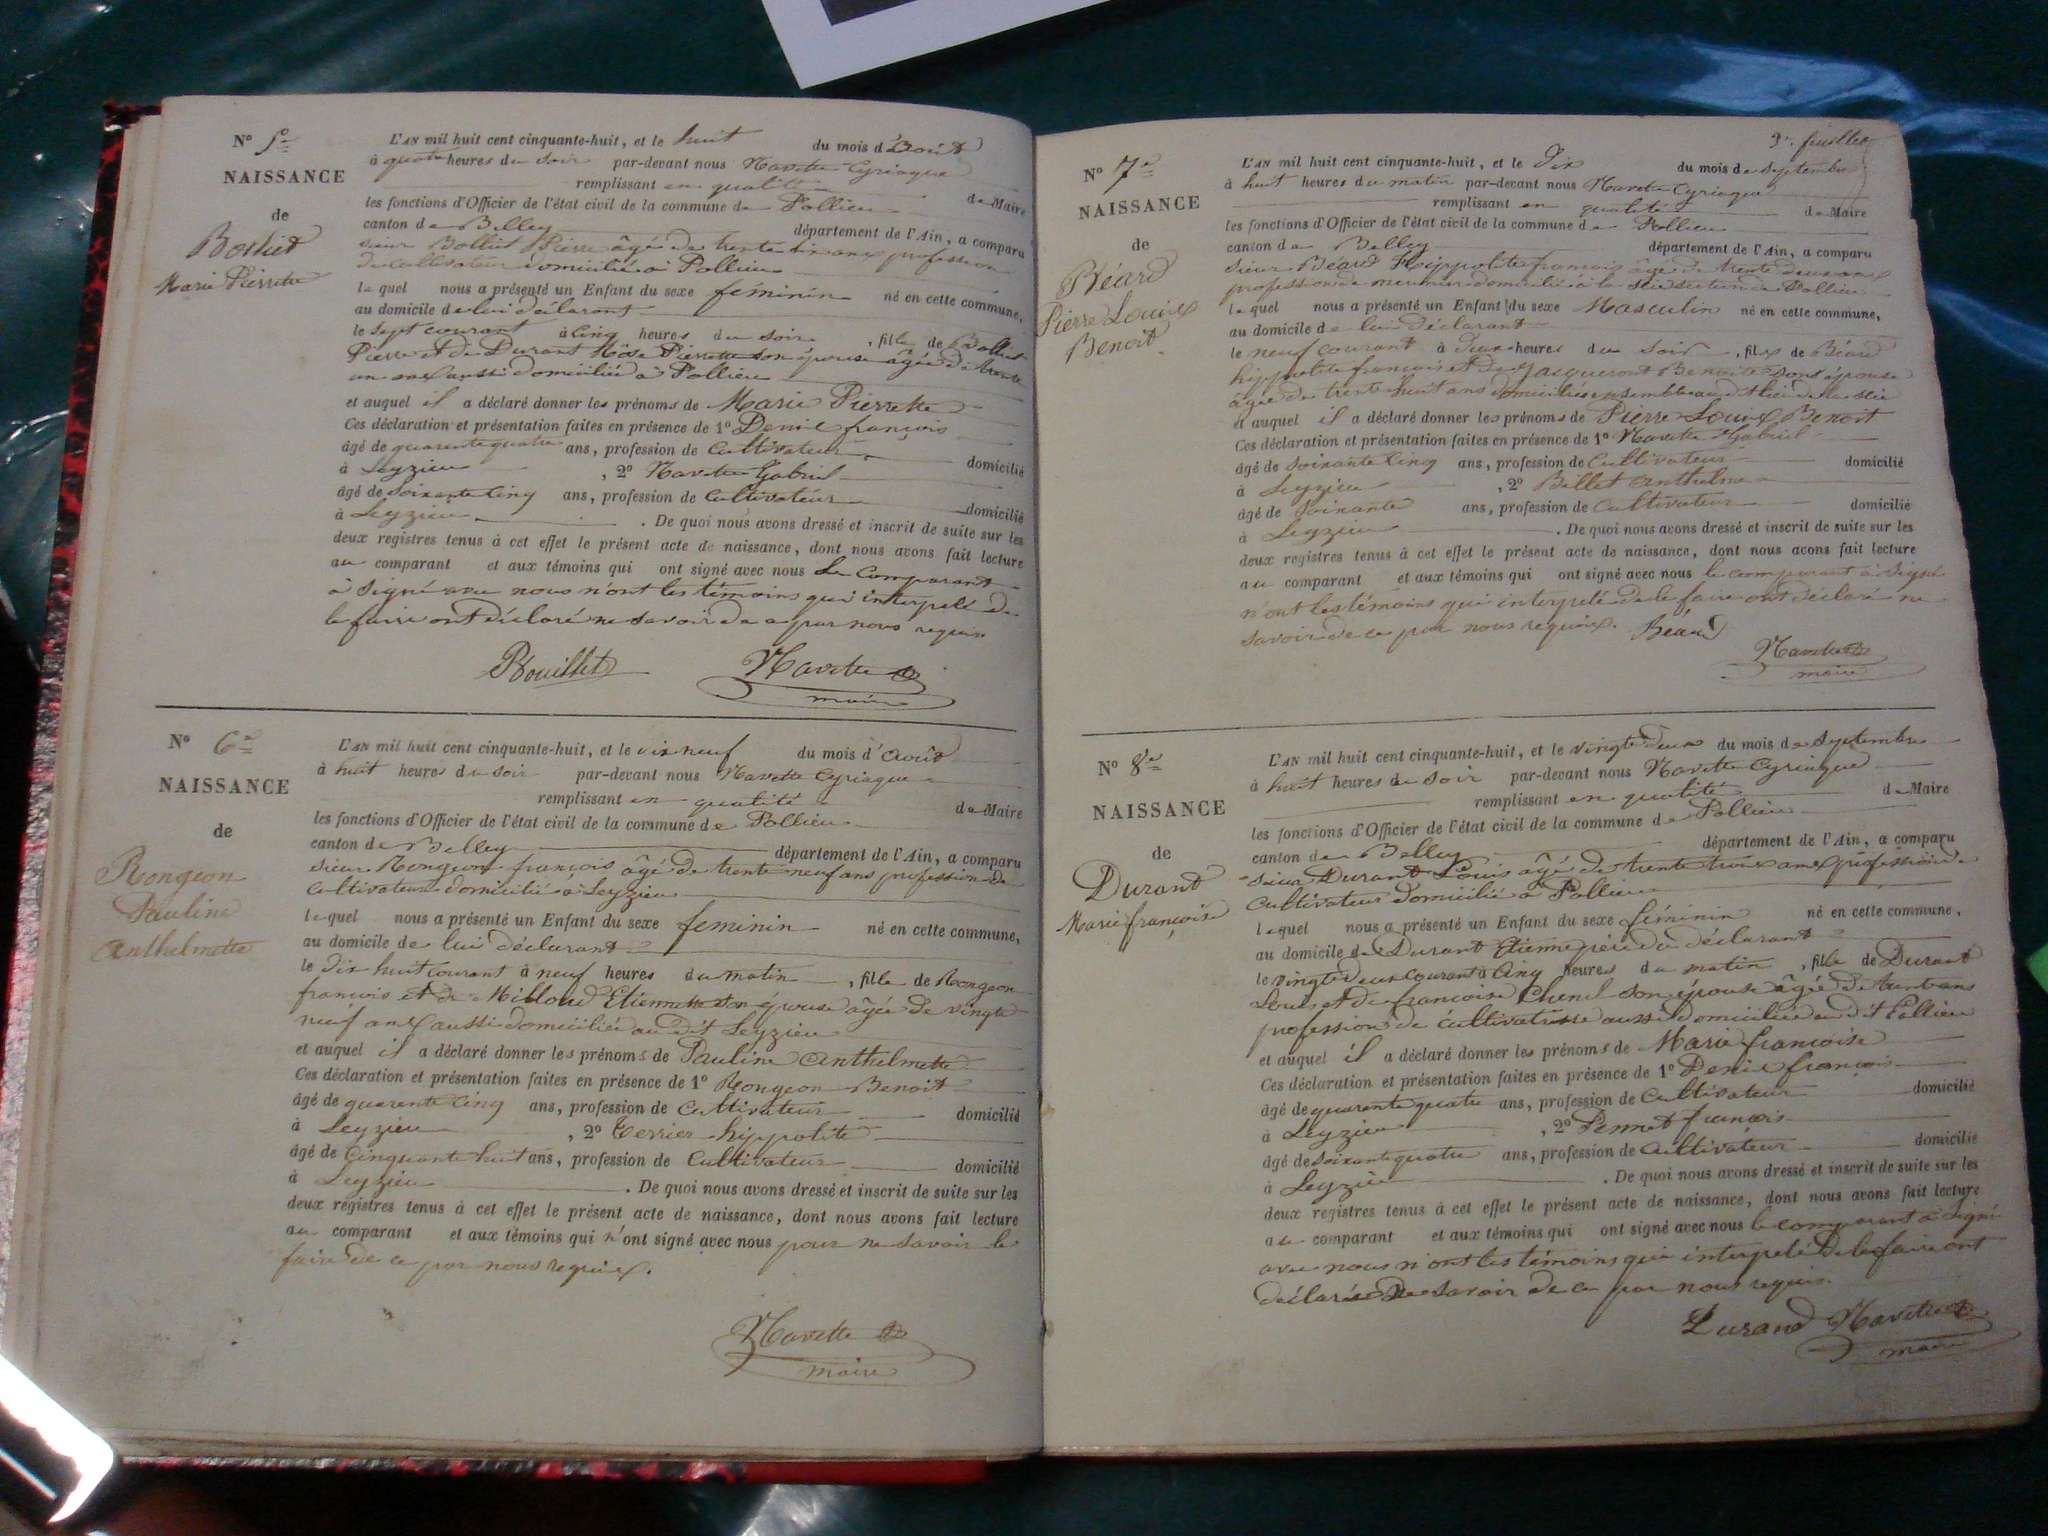 N° 5e
NAISSANCE
de
Bolliet
Marie Pierrette
L'AN mil huit cent cinquante-huit, et le huit du mois d'Août
à quatre heures du soir par-devant nous Navette Cyriaque
remplissant en qualité de Maire
les fonctions d'Officier de l'état civil de la commune de Pollieu
canton de Belley département de l'Ain, a comparu
sieur Bolliet Pierre âgé de trente six ans profession
de cultivateur domicilié à Pollieu
lequel nous a présenté un Enfant du sexe féminin né en cette commune,
au domicile de lui déclarant
le sept courant à cinq heures du soir, fille de Bolliet
Pierre et de Durant Pierrette son épouse âgée de trente
un ans aussi domiciliée à Pollieu
et auquel il a déclaré donner les prénoms de Marie Pierrette
Ces déclaration et présentation faites en présence de 1° Denis françois
âgé de quarente quatre ans, profession de Cultivateur domicilié
à Leyzieu, 2° Navette Gabriel
âgé de Soixante Cinq ans, profession de Cultivateur domicilié
à Leyzieu. De quoi nous avons dressé et inscrit de suite sur les
deux registres tenus à cet effet le présent acte de naissance, dont nous avons fait lecture
au comparant et aux témoins qui ont signé avec nous Le Comparant
à signé avec nous n'ont les témoins qui interpelé de
le faire ont déclaré ne savoir de ce par nous requis
Bouillet Navette
maire
N° 6e
NAISSANCE
de
Rongeon
Pauline
Anthelmette
L'AN mil huit cent cinquante-huit, et le dix neuf du mois d'Août
à huit heures du soir par-devant nous Navette Cyriaque
remplissant en qualité de Maire
les fonctions d'Officier de l'état civil de la commune de Pollieu
canton de Belley département de l'Ain, a comparu
sieur Rongeon françois âgé de trente neuf ans profession de
Cultivateur domicilié à Leyzieu
lequel nous a présenté un Enfant du sexe feminin né en cette commune,
au domicile de lui déclarant
le dix huit courant à neuf heures du matin, fille de Rongeon
françois et de Milloud Etiennette son épouse âgée de vingte
neuf ans aussi domiciliée au dit Leyzieu
et auquel il a déclaré donner les prénoms de Pauline Anthelmette
Ces déclaration et présentation faites en présence de 1° Rongeon Benoit
âgé de quarente cinq ans, profession de Cultivateur domicilié
à Leyzieu, 2° Terrier hippolite
âgé de Cinquante huit ans, profession de Cultivateur domicilié
à Leyzieu. De quoi nous avons dressé et inscrit de suite sur les
deux registres tenus à cet effet le présent acte de naissance, dont nous avons fait lecture
au comparant et aux témoins qui n'ont signé avec nous pour ne savoir le
faire de ce par nous requis.
Navette
maire
3e feuillet
N° 7e
NAISSANCE
de
Béard
Pierre Louis
Benoit
L'AN mil huit cent cinquante-huit, et le Dix du mois de septembre
à huit heures du matin par-devant nous Navette Cyriaque
remplissant en qualité de Maire
les fonctions d'Officier de l'état civil de la commune de Pollieu
canton de Belley département de l'Ain, a comparu
sieur Béard hippolite françois âgé de trente deux ans
profession de meunier domicilié à la section de Pollieu
lequel nous a présenté un Enfant du sexe Masculin né en cette commune,
au domicile de lui déclarant
le neuf courant à deux heures du soir, fils de Béard
hippolite françois et de Jacqueront Benoite sons épouse
âgée de trente huit ans domiciliés ensemble au dit lieu de
et auquel il a déclaré donner les prénoms de Pierre Louis Benoit
Ces déclaration et présentation faites en présence de 1° Navette Gabriel
âgé de soixante cinq ans, profession de Cultivateur domicilié
à Leyzieu, 2° Bellet Anthelme
âgé de soixante ans, profession de Cultivateur domicilié
à Leyzieu. De quoi nous avons dressé et inscrit de suite sur les
deux registres tenus à cet effet le présent acte de naissance, dont nous avons fait lecture
au comparant et aux témoins qui ont signé avec nous le comparant à signé
n'ont les témoins qui interpelé de le faire ont déclaré ne
savoir de ce par nous requis. Béard
Navette
maire
N° 8e
NAISSANCE
de
Durant
Marie françoise
L'AN mil huit cent cinquante-huit, et le vingte deux du mois de Septembre
à huit heures du soir par-devant nous Navette Cyriaque
remplissant en qualité de Maire
les fonctions d'Officier de l'état civil de la commune de Pollieu
canton de Belley département de l'Ain, a comparu
sieur Durant Louis âgé de trente trois ans profession de
Cultivateur domicilié à Pollieu
lequel nous a présenté un Enfant du sexe féminin né en cette commune,
au domicile de Durant Etienne père du déclarant
le vingte deux courant à cinq heures du matin, fille de Durant
Louis et de françoise son épouse âgée de
profession de cultivatrice aussi domiciliée au dit Pollieu
et auquel il a déclaré donner les prénoms de Marie françoise
Ces déclaration et présentation faites en présence de 1° Denis françois
âgé de quarente quatre ans, profession de Cultivateur domicilié
à Leyzieu, 2° Pennet françois
âgé de soixante quatre ans, profession de Cultivateur domicilié
à Leyzieu. De quoi nous avons dressé et inscrit de suite sur les
deux registres tenus à cet effet le présent acte de naissance, dont nous avons fait lecture
au comparant et aux témoins qui ont signé avec nous le comparant à signé
avec nous n'ont les témoins qui interpelé de le faire ont
déclaré ne savoir de ce par nous requis.
Durand Navette
maire